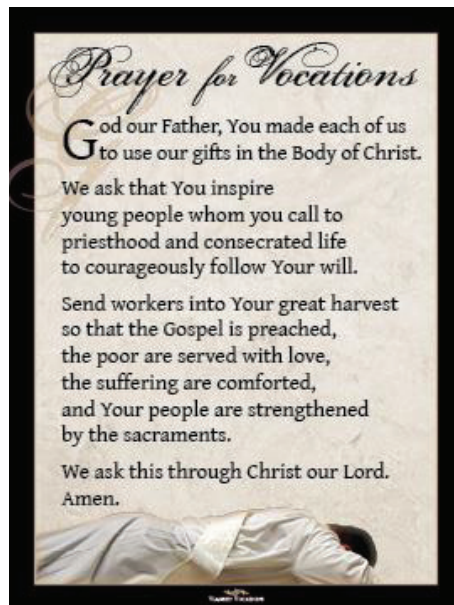 Prayer for Vocations
God our Father, You made each of us
to use our gifts in the Body of Christ.
We ask that You inspire
young people whom you call to
priesthood and consecrated life
to courageously follow Your will.
Send workers into Your great harvest
so that the Gospel is preached,
the poor are served with love,
the suffering are comforted,
and Your people are strengthened
by the sacraments.
We ask this through Christ our Lord.
Amen.